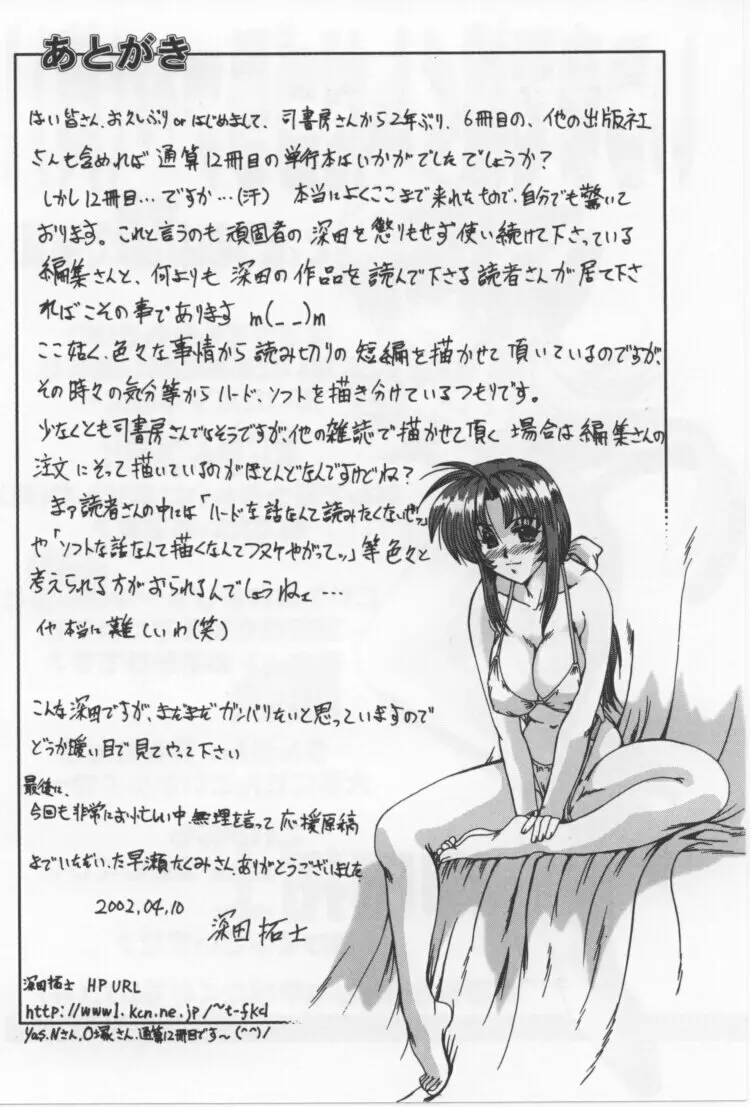 あとがき
はい皆さん、お久しぶりorはじめまして、司書房さんから2年ぶり、6冊目の、他の出版社
さんも含めれば通算12冊目の単行本はいかがでしたでしょうか?
しかし12冊目…ですか…(汗) 本当によくここまで来れたもので、自分でも驚いて
おります。これと言うのも頑固者の深田を懲りもせず使い続けて下さっている
編集さんと、何よりも深田の作品を読んで下さる読者さんが居て下さ
ればこその事であります m(_ _)m
ここ姑く、色々な事情から読み切りの短編を描かせて頂いているのですが、
その時々の気分等からハード、ソフトを描き分けているつもりです。
少なくとも司書房さんではそうですが、他の雑誌で描かせて頂く場合は編集さんの
注文にそって描いているのがほとんどなんですけどね?
まァ読者さんの中には「ハードな話なんて読みたくないぜッ」
や「ソフトな話なんて描くなんてフヌケやがってッ」等色々と
考えられる方がおられるんでしょうねェ…
イヤ本当に難しいわ(笑)
こんな深田ですが、まだまだガンバりたいと思っていますので
どうか暖い目で見てやって下さい
最後に、
今回も非常にお忙しい中、無理を言って応援原稿
までいただいた早瀬たくみさん、ありがとうございました
2002,04,10
深田拓士
深田拓士 HP URL
http://www1.kcn.ne.jp/~t-fkd
Yas.Nさん、O塚さん、通算12冊目です〜(^^)/